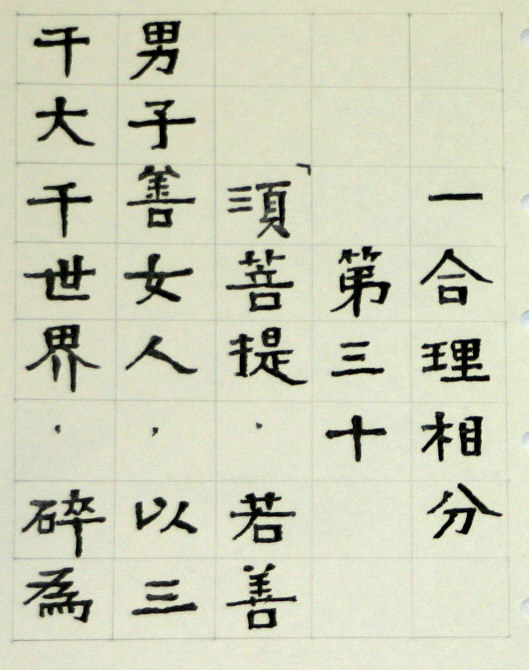 一合理相分
第三十
「須菩提·若善
男子善女人，以三
千大千世界·碎為